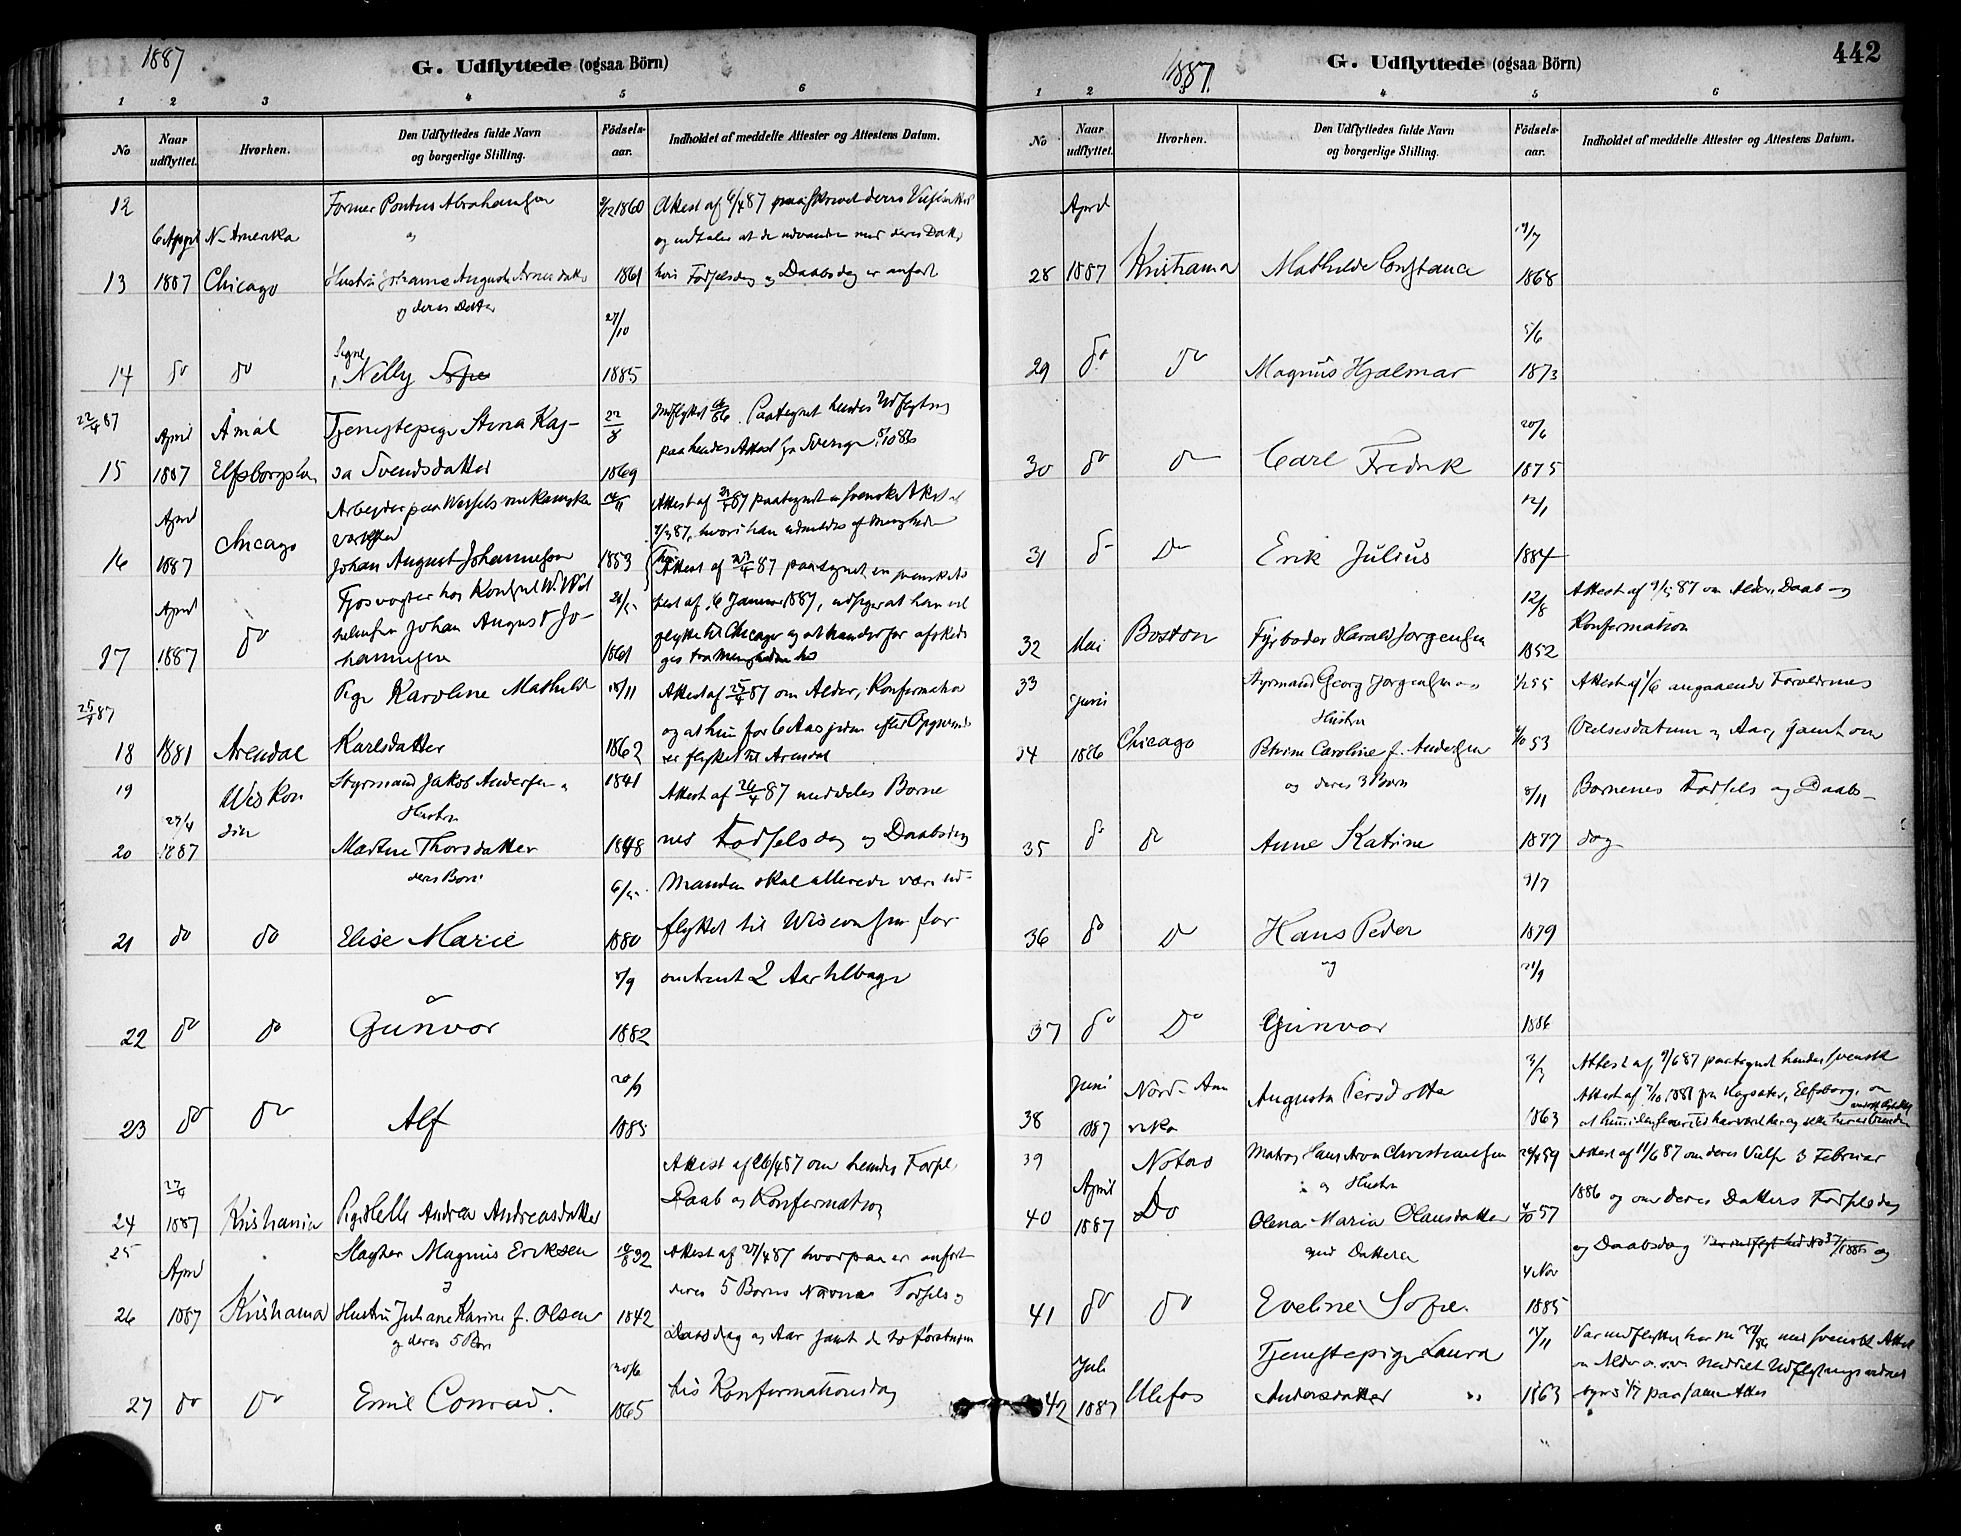 1887
G. Udflyttede (ogsaa Börn)
1 2 3 4 5 6
No
Naar udflyttet.
Hvorhen.
Den Udflyttedes fulde Navn og borgerlige Stilling.
Födsels-aar.
Indholdet af meddelte Attester og Attestens Datum.
12
Former Pontus Abrahamsen
1860
Attest af 6/4 87
og
og udtaler at de udvandre med deres Datter
13 6 April 1887 N-Amerika Chicago
Hustru Johanne Augusta Arnesdatter
1861
hvis Fødselsdag og Daabsdag er anført
og deres Datter
27/10
Signe
14 do do Nelly Sofie 1885
22/4 87
15 April 1887 Åmål
Tjenestepige Stina Kaj-
sa Svendsdatter
22/8 1869
Indflyttet
Paategnet hendes Udflytning
paa hendes Attest fra Sverige
16 April 1887 Chicago
Arbejder paa
Johan August Johannesen
1853
Attest af
87 paategnet
hvori han udmeldes af Menigheden
17 April 1887 do
Fjøsrogter hos Konsul
Johan August Jo-
hannesen
1861
Attest af 23/4 87 paategnet en svensk At-
test af 6 Januar 1887, udsiger at han vil
flytte til Chicago og at han derfor afskedi-
ges fra Menigheden
25/4 87
18 1881 Arendal
Pige Karoline Mathilde
Karlsdatter
18/11 1862
Attest af 25/4 87 om Alder, Konfirmation
og at hun for 6 Aar siden efter Opgivende
er flyttet til Arendal
19
Styrmand Jakob Andersen og
Hustru
1841
Attest af 26/4 87 meddeles Børne
20 27/4 1887 Wiskonsin
Martine Thorsdatter
1848
nes Fødselsdag og Daabsdag
deres Børn
Manden skal allerede være ud-
21 do do Elise Marie 1880
flyttet til Wisconsin for
omtrent 2 Aar tilbage
22 do do Gunvor 1882
23 do do Alf 20/9 1885
24 27/4 1887 Kristiania
Pige Helle Andrea Andreasdatter
Attest af 26/4 87 om hendes Fødsel,
Daab og Konfirmation
25
Slagter Magnus Eriksen
og
Attest af 27/4 87 hvorpaa er anført
deres 5 Børns Navne Fødsels og
26 April 1887 Kristiania
Hustru Juliane Karine f. Olsen
og deres 5 Børn
1842
Daabsdag og Aar samt de to førstes
27 do do Emil Conrad. 20/6 1865
tes Konfirmationsdag
442
1887.
G. Udflyttede (ogsaa Börn)
1 2 3 4 5 6
No
Naar udflyttet.
Hvorhen.
Den Udflyttedes fulde Navn og borgerlige Stilling.
Födsels-aar.
Indholdet af meddelte Attester og Attestens Datum.
28 April 1887 Kristiania Mathilde Constance 1868
29 do do Magnus Hjalmar 5/6 1873
30 do do Carl Fredrik 20/6 1875
31 do Do Erik Julius 12/1 1884
32 Mai Boston Fyrbøder Harald Jørgensen 12/8 1852
Attest af 9/5 87 om Alder, Daab og
Konfirmation
33
Styrmand Georg Jørgensen og
Hustru
1/2 55
Attest af 1/6 angaaende Forældrenes
34 Juni 1886 Chicago
Petrine Caroline f. Andersen
og deres 3 Børn
53
Vielsesdatum og Aar, samt om
Børnenes Fødsels og Daabs-
35 do do Anne Katrine 8/11 1877
dag
36 do Do Hans Peder 9/7 1879
og
37 do Do Gunvor 21/9 1886
38 Juni 1887 Nord-Amerika
Augusta Persdotter
3/3 1863
Attest af 9/6 87 paategnet hendes svenske
Attest af 7/10 1881 fra
Elfsborg, om
39
Matros Hans Aron Christiansen
og Hustru
59
Attest af 11/6 87 om deres Vielse 3 Februar
40 April 1887 Do
Olena Maria Olausdatter
57
1886 og om deres Datters Fødselsdag
med Datteren
og Daabsdag
41 do do Eveline Sofie. 4 Nov 1885
42 Juli 1887 Ulefos
Tjenestepige Laura
Andersdatter
1863
Var indflyttet
med svensk Attest
om Alder o.s.v. Meddelt Udflytnings
1/7 paa samme Attest